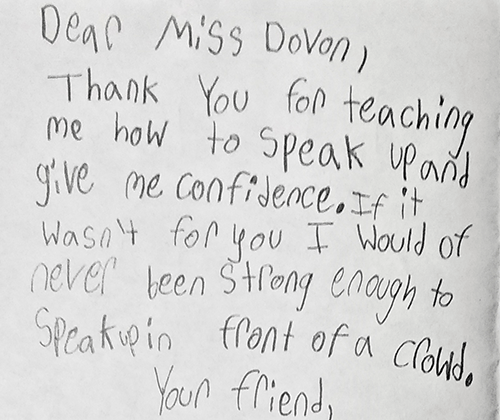 Dear Miss Dovon,
Thank You for teaching
me how to speak up and
give me confidence. If it
wasn't for you I would of
never been strong enough to
speak up in front of a crowd.
Your friend,